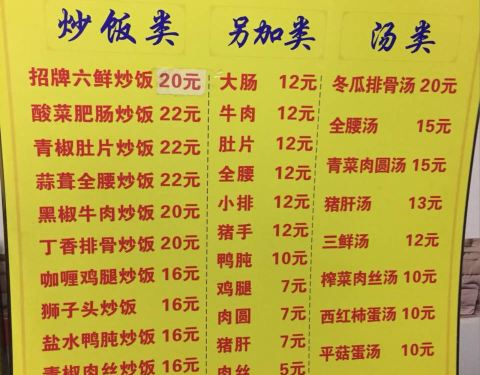 炒饭类
招牌六鲜炒饭 20元
酸菜肥肠炒饭 22元
青椒肚片炒饭 22元
蒜茸全腰炒饭 22元
黑椒牛肉炒饭 20元
丁香排骨炒饭 20元
咖喱鸡腿炒饭 16元
狮子头炒饭 16元
盐水鸭肫炒饭 16元
青椒肉丝炒饭 16元
另加类
大肠 12元
牛肉 12元
肚片 12元
全腰 12元
小排 12元
猪手 12元
鸭肫 10元
鸡腿 7元
肉圆 7元
猪肝 7元
肉丝 5元
汤类
冬瓜排骨汤 20元
全腰汤 15元
青菜肉圆汤 15元
猪肝汤 13元
三鲜汤 12元
榨菜肉丝汤 10元
西红柿蛋汤 10元
平菇蛋汤 10元